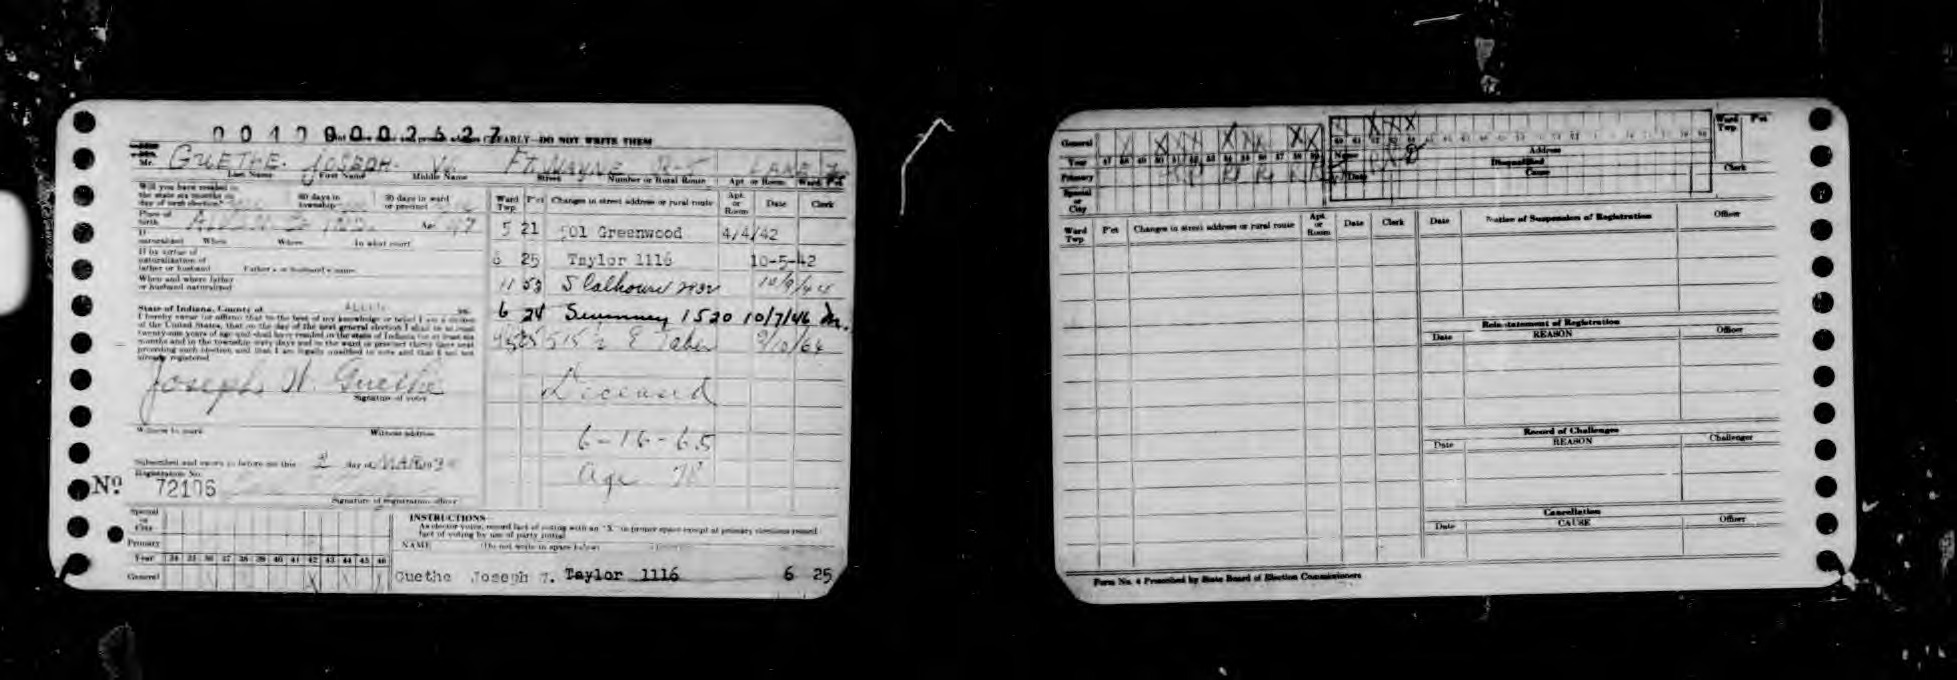 0010000002527
CLEARLY—DO NOT WRITE THEM
Mr. GUETHE. JOSEPH. W. FT. WAYNE R-5 LAKE
Last Name First Name Middle Name Street Number or Rural Route Apt. or Room Ward Pct
Will you have resided in the state six months on day of next election? 60 days in township 30 days in ward or precinct
Place of birth ALLEN CO IND. Age 47
If naturalized When Where In what court
If by virtue of naturalization of father or husband Father's or husband's name
When and where father or husband naturalized
State of Indiana, County of ALLEN
I hereby swear (or affirm) that to the best of my knowledge or belief I am a citizen
of the United States, that on the day of the next general election I shall be at least
twenty-one years of age and shall have resided in the state of Indiana for at least six
months and in the township sixty days and in the ward or precinct thirty days next
preceding such election, and that I am legally qualified to vote and that I am not
already registered
Joseph W. Guethe
Signature of voter
Witness to mark Witness address
Subscribed and sworn to before me this 2 day of MAR
Registration No.
No. 72106
Signature of registration officer
Ward Twp. P'ct Changes in street address or rural route Apt. or Room Date Clerk
5 21 501 Greenwood 4/4/42
6 25 Taylor 1116 10-5-42
11 53 S Calhoun 10/9/44
6 24 Swinney 1520 10/7/46 M.
515 ½ E Taber 9/10/64
Deceased
6-16-65
Age 78
Special or City
Primary
Year 34 35 36 37 38 39 40 41 42 43 44 45 46
General
INSTRUCTIONS—
As elector votes, record fact of voting with an "X" in proper space except at primary elections record
fact of voting by use of party initial
NAME (Do not write in space below)
Guethe Joseph W. Taylor 1116 6 25
General
Year 47 48 49 50 51 52 53 54 55 56 57 58 59
Primary
Special or City
Name Address
Disqualified
Date Cause
Ward Twp. P'ct
Clerk
Ward Twp P'ct Changes in street address or rural route Apt. or Room Date Clerk
Date Notice of Suspension of Registration Officer
Reinstatement of Registration
Date REASON Officer
Record of Challenges
Date REASON Challenger
Cancellation
Date CAUSE Officer
Form No. 4 Prescribed by State Board of Election Commissioners